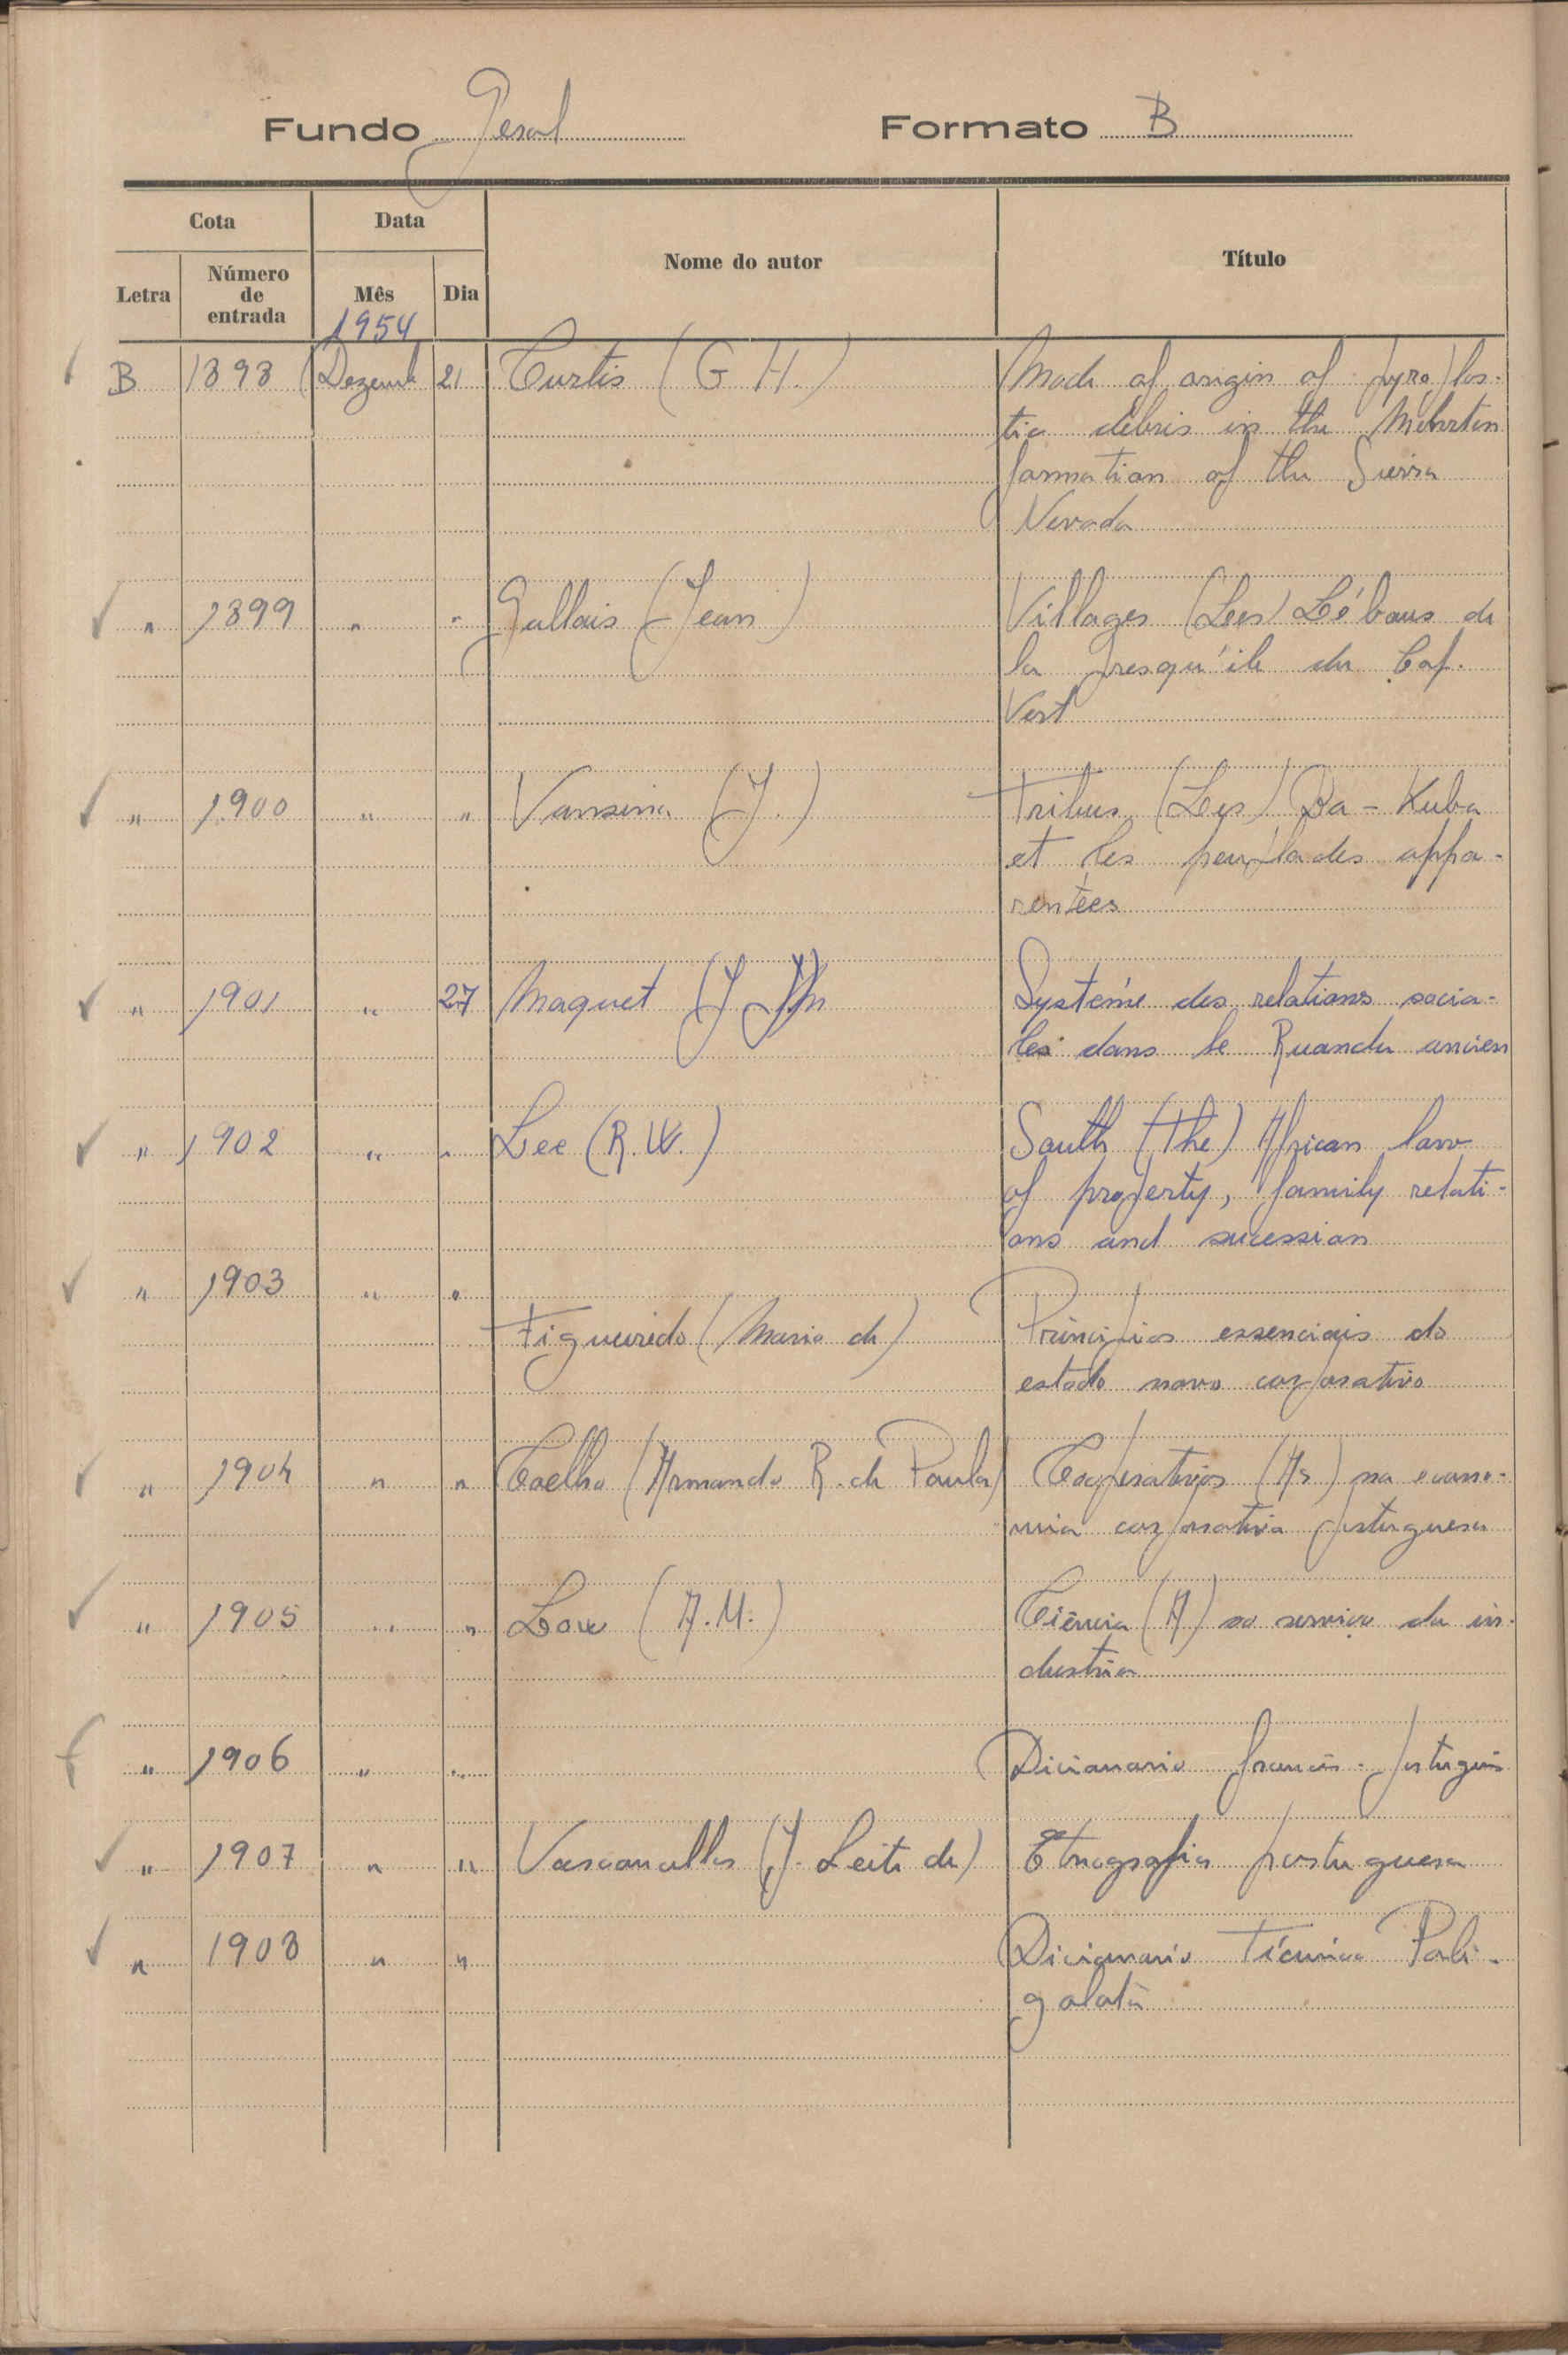 Fundo Geral Formato B
Cota Data Nome do autor Título
Letra Número de entrada Mês Dia
1954
B 1898 Dezemb 21 Curtis (G H.) Mode of origin of pyroplas-
tic débris in the Mehrten
formation of the Sierra
Nevada
" 1899 " " Gallais (Jean) Villages (Les) Lébous de
la presqu'ile du Cap.
Vert
" 1900 " " Vansina (J.) Tribus (Les) Ba-Kuba
et les peuplades appa-
rentées
" 1901 " 27 Maquet (J J)m Systéme des relations socia-
les dans le Ruanda ancien
" 1902 " " Lee (R.W.) South (The) African law
of property, family relati-
ons and sucession
" 1903 " "
Figueiredo (Mario de) Principios essenciais do
estado novo corporativo
" 1904 " " Coelho (Armando R. de Paula) Cooperativas (As) na econo-
mia corporativa portuguesa
" 1905 " " Low (A.M.) Ciência (A) ao serviço da in-
dustria
" 1906 " " Dicionario francês-português
" 1907 " " Vasconcellos (J. Leite de) Etnografia portuguesa
" 1908 " " Dicionario Técnico Poli-
golota